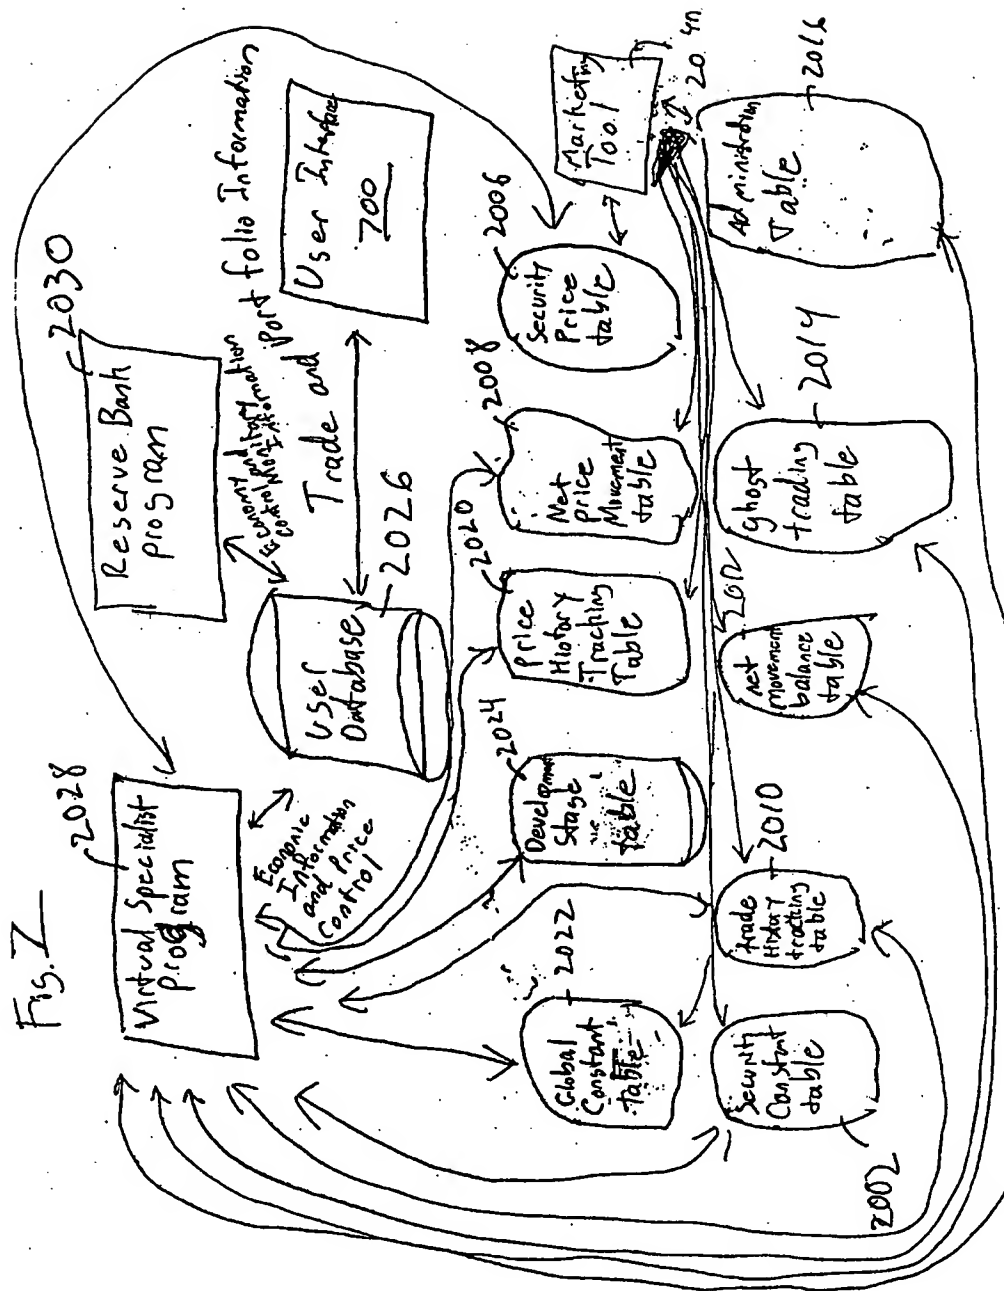 Fig. 7
2028
Virtual Specialist
Program
2030
Reserve Bank
program
Economy and
Monitary
control Information
Economic
Information
and Price
Control
User
Database
2026
Trade and Port folio Information
User Interface
700
2022
Global
Constant
table
2024
Development
Stage
table
2020
Price
History
Tracking
Table
2008
Net
Price
Movement
table
2006
Security
Price
table
Marketing
Tool
2002
Security
Constant
table
2010
trade
History
tracking
table
2012
net
movement
balance
table
2014
ghost
trading
table
2016
Administration
Table